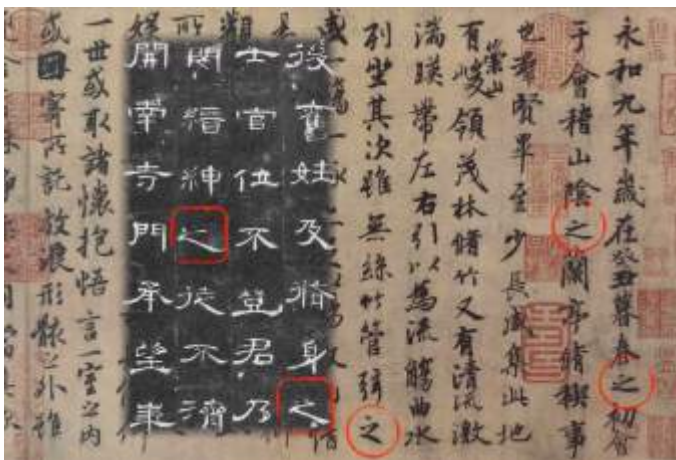 永和九年歲在癸丑暮春之初會
于會稽山陰之蘭亭脩稧事
也羣賢畢至少長咸集此地
有崇山峻領茂林脩竹又有清流激
湍暎帶左右引以為流觴曲水
列坐其次雖無絲竹管弦之
後舊姓及脩身之
士官位不登君乃
閔縉紳之徒不濟
開學寺門承望來
一世或取諸懷抱悟言一室之內
或因寄所託放浪形骸之外雖